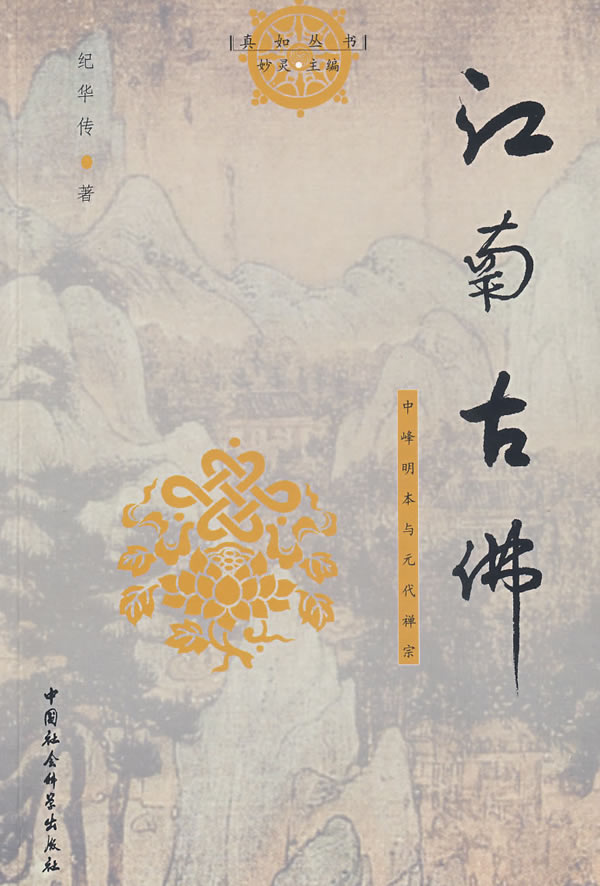 真如丛书
妙灵·主编
江南古佛
中峰明本与元代禅宗
纪华传·著
中国社会科学出版社